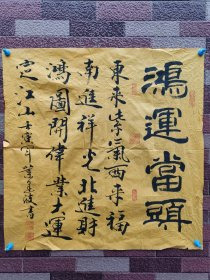 鴻運當頭
東來紫氣西來福
南進祥光北進財
鴻圖開偉業大運
定江山壬寅年